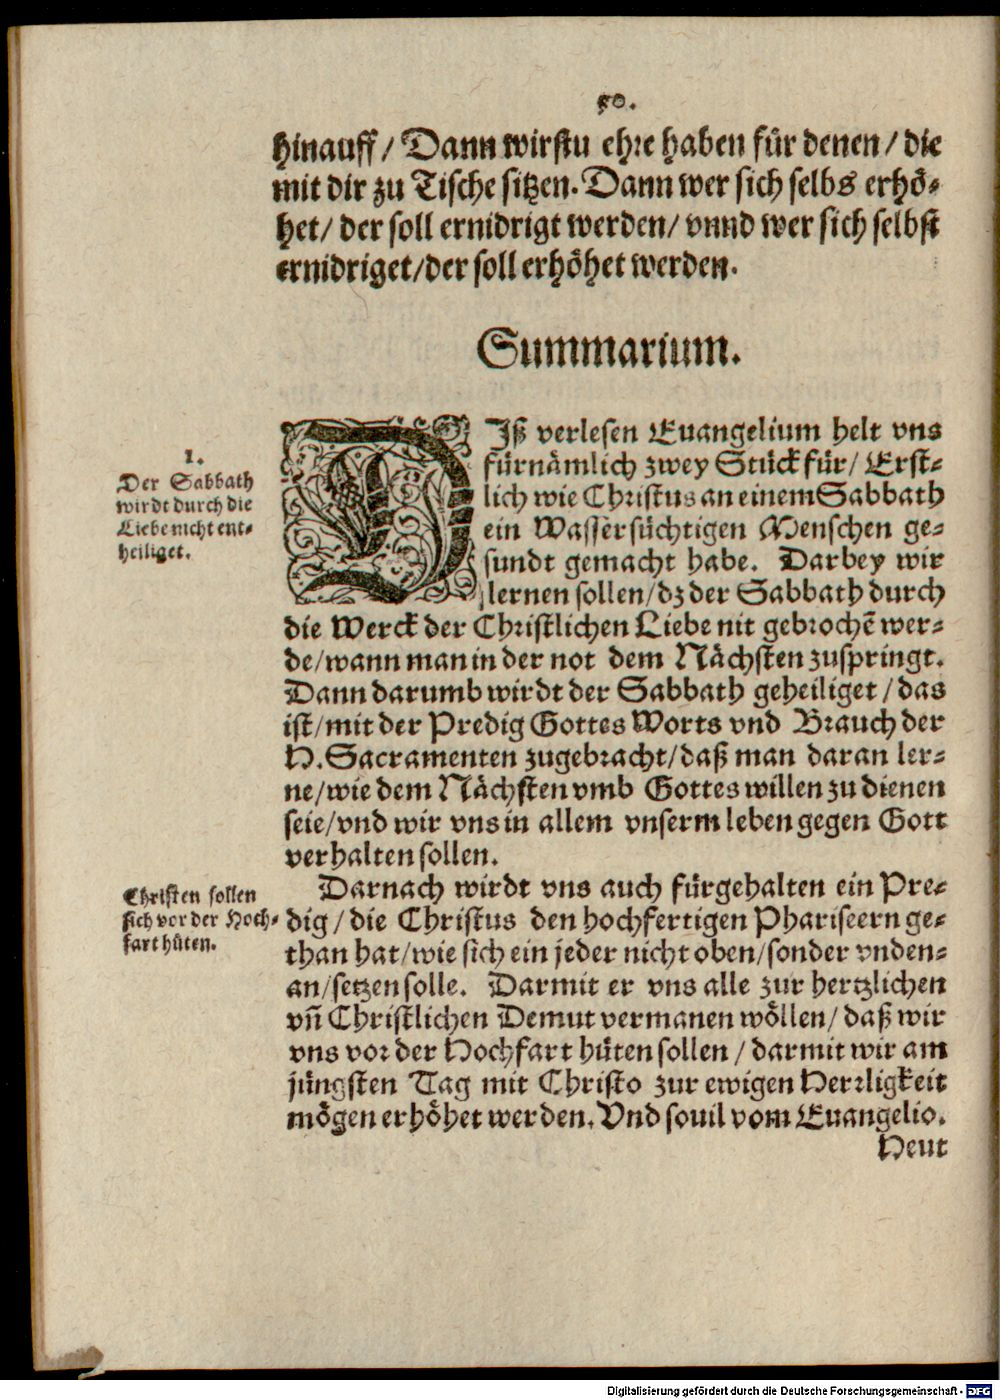 50.
hinauff / Dann wirstu ehre haben für denen / die
mit dir zu Tische sitzen. Dann wer sich selbs erhö-
het / der soll ernidrigt werden / vnnd wer sich selbst
ernidriget / der soll erhöhet werden.
Summarium.
1.
Der Sabbath
wirdt durch die
Liebe nicht ent-
heiliget.
DIß verlesen Euangelium helt vns
fürnämlich zwey Stück für / Erst-
lich wie Christus an einem Sabbath
ein Wassersüchtigen Menschen ge-
sundt gemacht habe. Darbey wir
lernen sollen / dz der Sabbath durch
die Werck der Christlichen Liebe nit gebrochē wer-
de / wann man in der not dem Nächsten zuspringt.
Dann darumb wirdt der Sabbath geheiliget / das
ist / mit der Predig Gottes Worts vnd Brauch der
H. Sacramenten zugebracht / daß man daran ler-
ne / wie dem Nächsten vmb Gottes willen zu dienen
seie / vnd wir vns in allem vnserm leben gegen Gott
verhalten sollen.
Christen sollen
sich vor der Hoch-
fart hüten.
Darnach wirdt vns auch fürgehalten ein Pre-
dig / die Christus den hochfertigen Phariseern ge-
than hat / wie sich ein jeder nicht oben / sonder vnden-
an / setzen solle. Darmit er vns alle zur hertzlichen
vn̄ Christlichen Demut vermanen wöllen / daß wir
vns vor der Hochfart hüten sollen / darmit wir am
jüngsten Tag mit Christo zur ewigen Herrligkeit
mögen erhöhet werden. Vnd souil vom Euangelio.
Heut
Digitalisierung gefördert durch die Deutsche Forschungsgemeinschaft - DFG